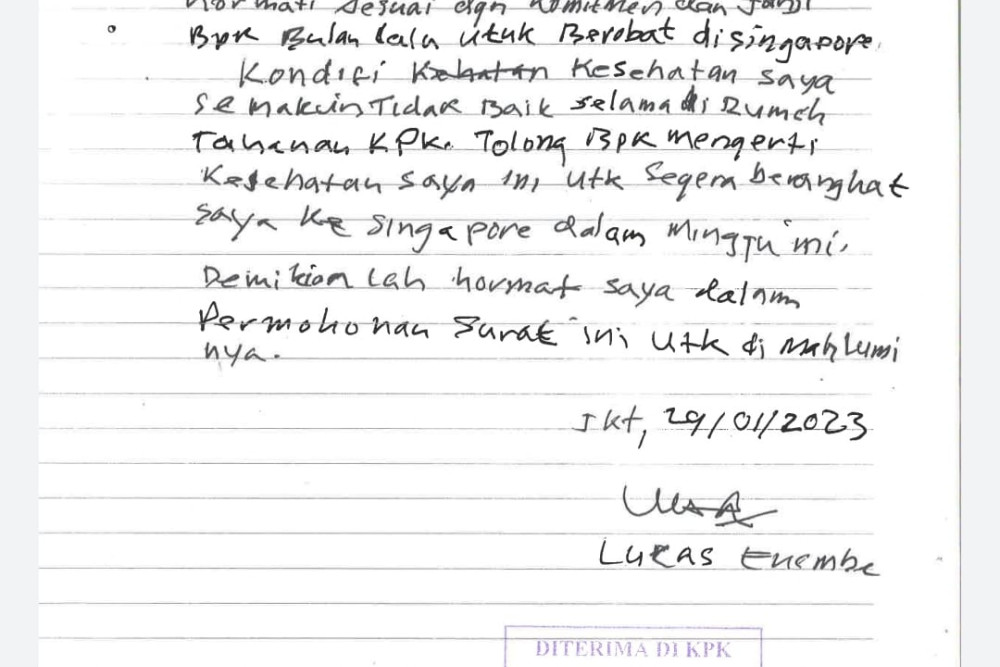 hormati sesuai dgn komitmen dan janji
Bpk Bulan lalu utuk Berobat disingapore.
Kondisi Kehatan Kesehatan saya
semakuin Tidak Baik selama di Rumah
Tahanan KPK. Tolong Bpk mengerti
Kesehatan saya ini utk Segera berangkat
saya ke Singapore dalam minggu ini.
Demikian Lah hormat saya dalam
Permohonan Surat ini Utk di mahlumi
nya.
Jkt, 29/01/2023
Lukas Enembe
DITERIMA DI KPK